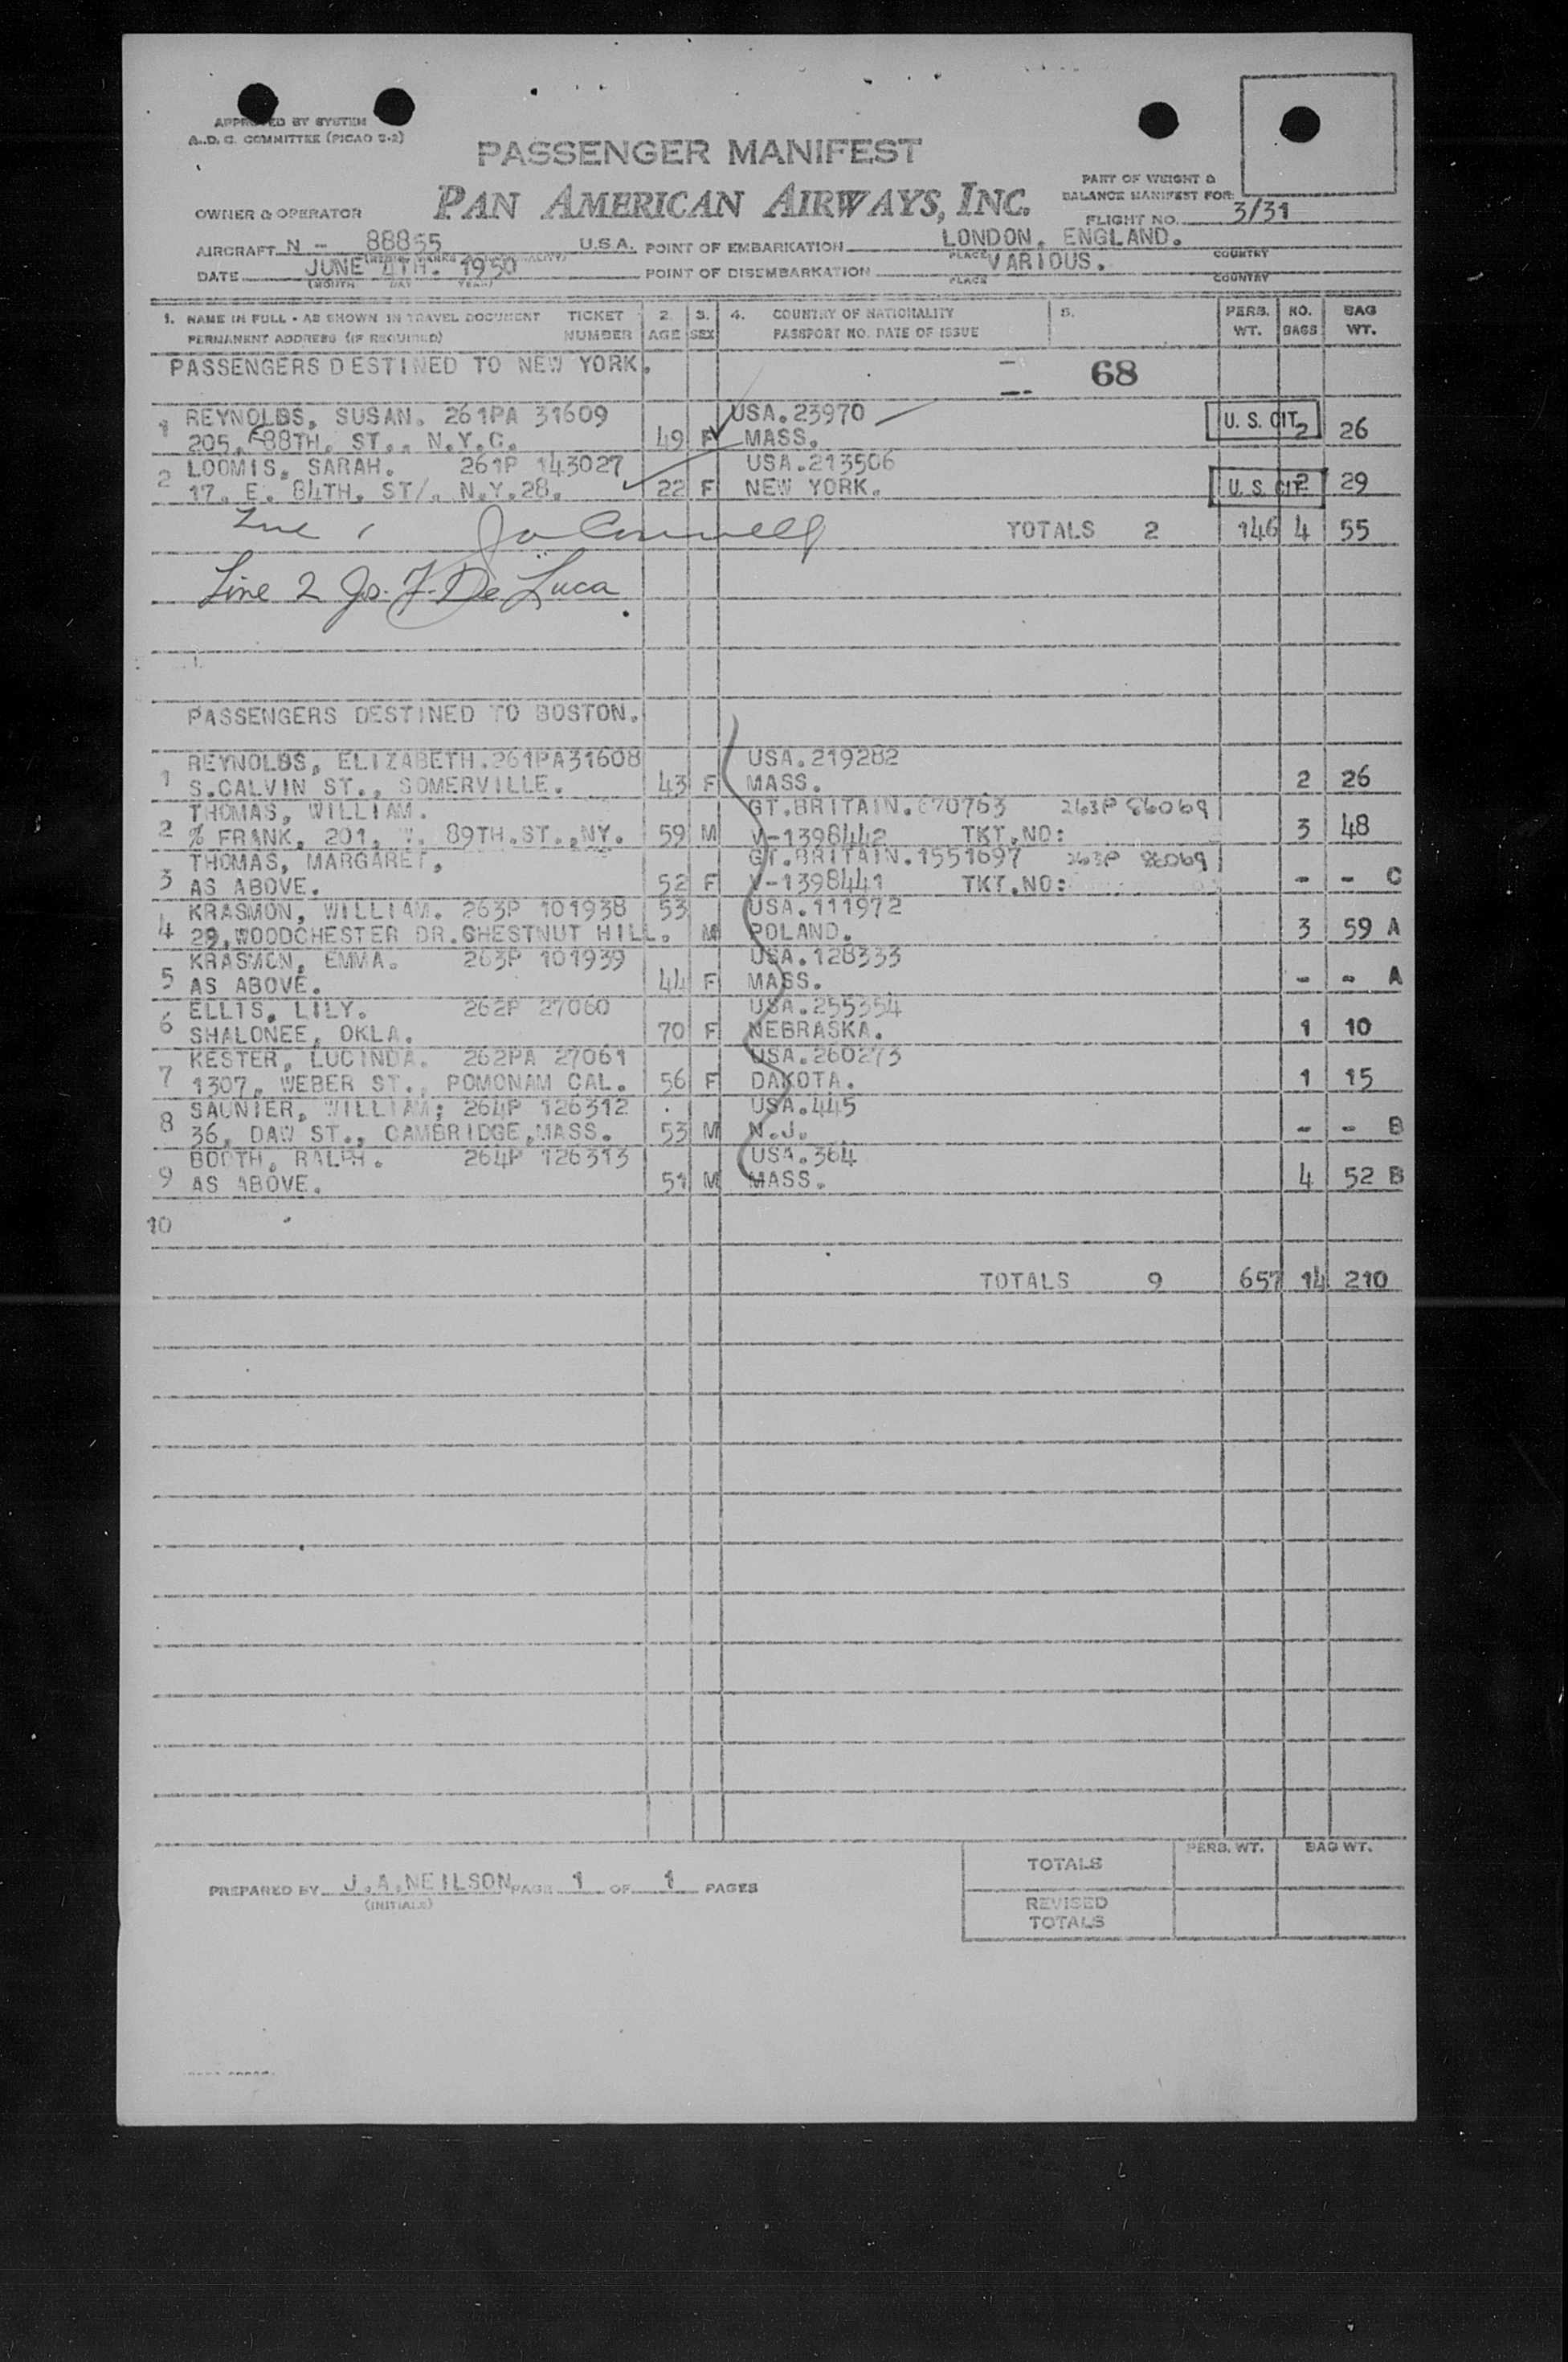 APPROVED BY SYSTEM
A.D.C. COMMITTEE (PICAO 5-2)
PASSENGER MANIFEST
PAN AMERICAN AIRWAYS, INC.
PART OF WEIGHT &
BALANCE MANIFEST FOR:
OWNER & OPERATOR
FLIGHT NO. 3/31
AIRCRAFT N - 88855 U.S.A. POINT OF EMBARKATION LONDON, ENGLAND.
PLACE COUNTRY
DATE JUNE 4TH. 1950 POINT OF DISEMBARKATION VARIOUS.
(MONTH DAY YEAR) PLACE COUNTRY
1. NAME IN FULL - AS SHOWN IN TRAVEL DOCUMENT TICKET 2. 3. 4. COUNTRY OF NATIONALITY 5. PERS. NO. BAG
PERMANENT ADDRESS (IF REQUIRED) NUMBER AGE SEX PASSPORT NO. DATE OF ISSUE WT. BAGS WT.
PASSENGERS DESTINED TO NEW YORK. 68
1 REYNOLDS, SUSAN. 261PA 31609 USA.23970 U. S. CIT.
205, E88TH. ST., N.Y.C. 49 F MASS. 2 26
2 LOOMIS, SARAH. 261P 143027 USA.213506
17. E. 84TH. ST/. N.Y.28. 22 F NEW YORK. U. S. CIT. 2 29
TOTALS 2 146 4 55
Line 2 Js. F. De Luca
PASSENGERS DESTINED TO BOSTON.
1 REYNOLDS, ELIZABETH.261PA31608 USA.219282
S.CALVIN ST., SOMERVILLE. 43 F MASS. 2 26
THOMAS, WILLIAM. GT.BRITAIN.670763 263P 86069
2 % FRANK, 201, W. 89TH.ST.,NY. 59 M V-1398442 TKT.NO: 3 48
THOMAS, MARGARET, GT.BRITAIN.1551697 263P 86069
3 AS ABOVE. 52 F V-1398441 TKT.NO: - - C
KRASMON, WILLIAM. 263P 101938 53 USA.111972
4 29,WOODCHESTER DR.CHESTNUT HILL. M POLAND. 3 59 A
KRASMON, EMMA. 263P 101939 USA.128333
5 AS ABOVE. 44 F MASS. - - A
ELLIS, LILY. 262P 27060 USA.255354
6 SHALONEE, OKLA. 70 F NEBRASKA. 1 10
KESTER, LUCINDA. 262PA 27061 USA.260273
7 1307, WEBER ST., POMONAM CAL. 56 F DAKOTA. 1 15
SAUNIER, WILLIAM; 264P 126312 USA.445
8 36, DAW ST., CAMBRIDGE,MASS. 53 M N.J. - - B
BOOTH, RALPH. 264P 126313 USA.364
9 AS ABOVE. 51 M MASS. 4 52 B
10
TOTALS 9 657 14 210
PERS. WT. BAG WT.
TOTALS
PREPARED BY J.A.NEILSON PAGE 1 OF 1 PAGES
(INITIALS)
REVISED
TOTALS